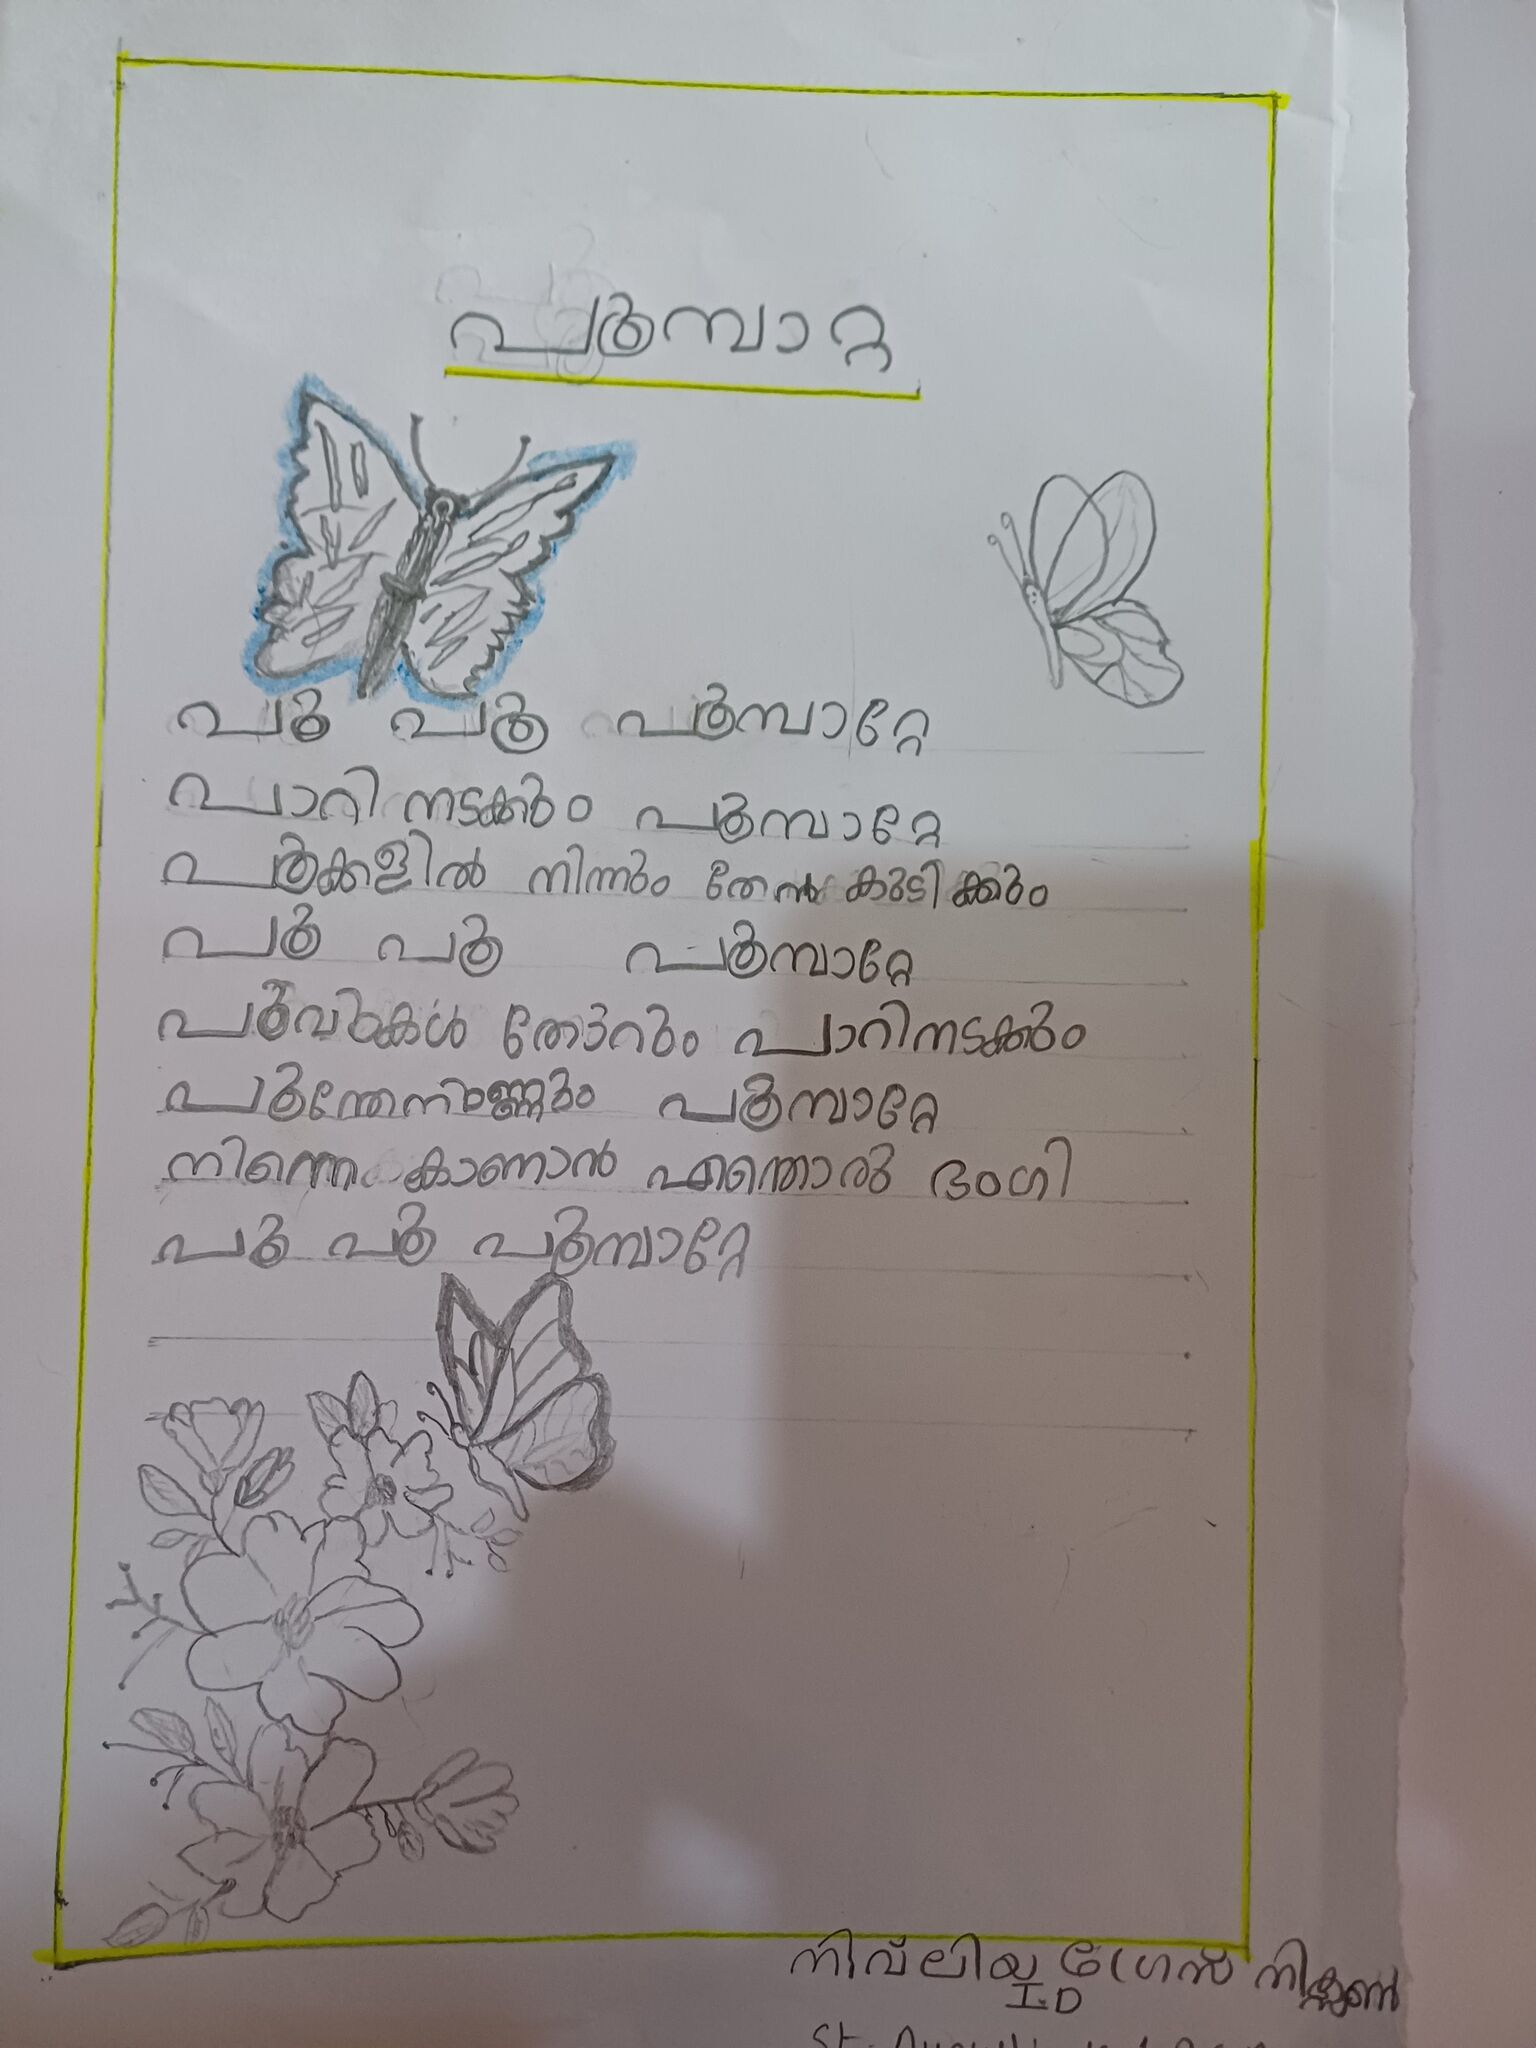 പൂമ്പാറ്റ
പൂ പൂ പൂമ്പാറ്റേ
പാറി നടക്കും പൂമ്പാറ്റേ
പൂക്കളിൽ നിന്നും തേൻ കുടിക്കും
പൂ പൂ പൂമ്പാറ്റേ
പൂവുകൾ തോറും പാറിനടക്കും
പൂന്തേനുണ്ണും പൂമ്പാറ്റേ
നിന്നെ കാണാൻ എന്തൊരു ഭംഗി
പൂ പൂ പൂമ്പാറ്റേ
നിവ്ലിയ ഗ്രേസ്
I.D
St.